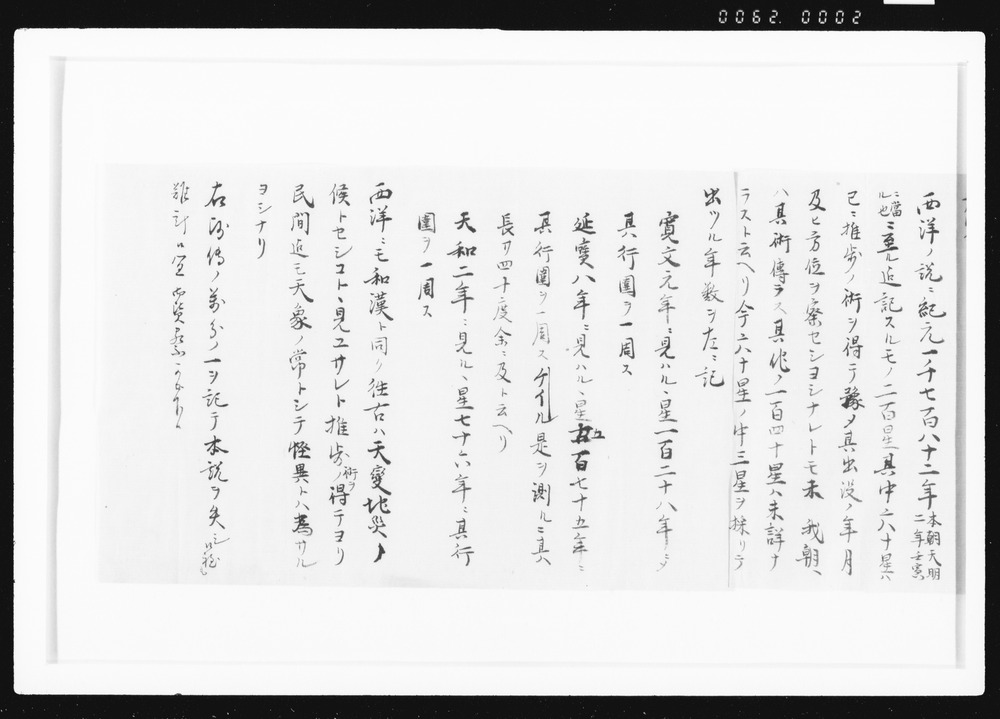 0062.0002
西洋ノ説ニ紀元一千七百八十二年本朝天明二年壬寅
ニ當ル也ニ至ル迠記スルモノ二百星其中六十星ハ
已ニ推歩ノ術ヲ得テ豫メ其出没ノ年月
及ヒ方位ヲ察セシヨシナレトモ未 我朝ヘ
ハ其術傳ラス其他ノ一百四十星ハ未詳ナ
ラスト云ヘリ今六十星ノ中三星ヲ採リテ
出ツル年数ヲ左ニ記
寛文元年ニ見ハル丶星一百二十八年ニメ
其行圏ヲ一周ス
延寳八年ニ見ハル丶星五百七十五年ニ
其行圏ヲ一周スゲイル是ヲ測ルニ其ハ
長サ四十度余ニ及ト云ヘリ
天和二年ニ見ル丶星七十六年ニ其行
圏ヲ一周ス
西洋ニモ和漢ト同ク往古ハ天變地災ノ
候トセシコト丶見ユサレト推歩ノ術ヲ得テヨリ
民間迠モ天象ノ常トシテ怪異トハ為サル
ヨシナリ
右 傳ノ萬分ノ一ヲ記テ本説ヲ失
難計